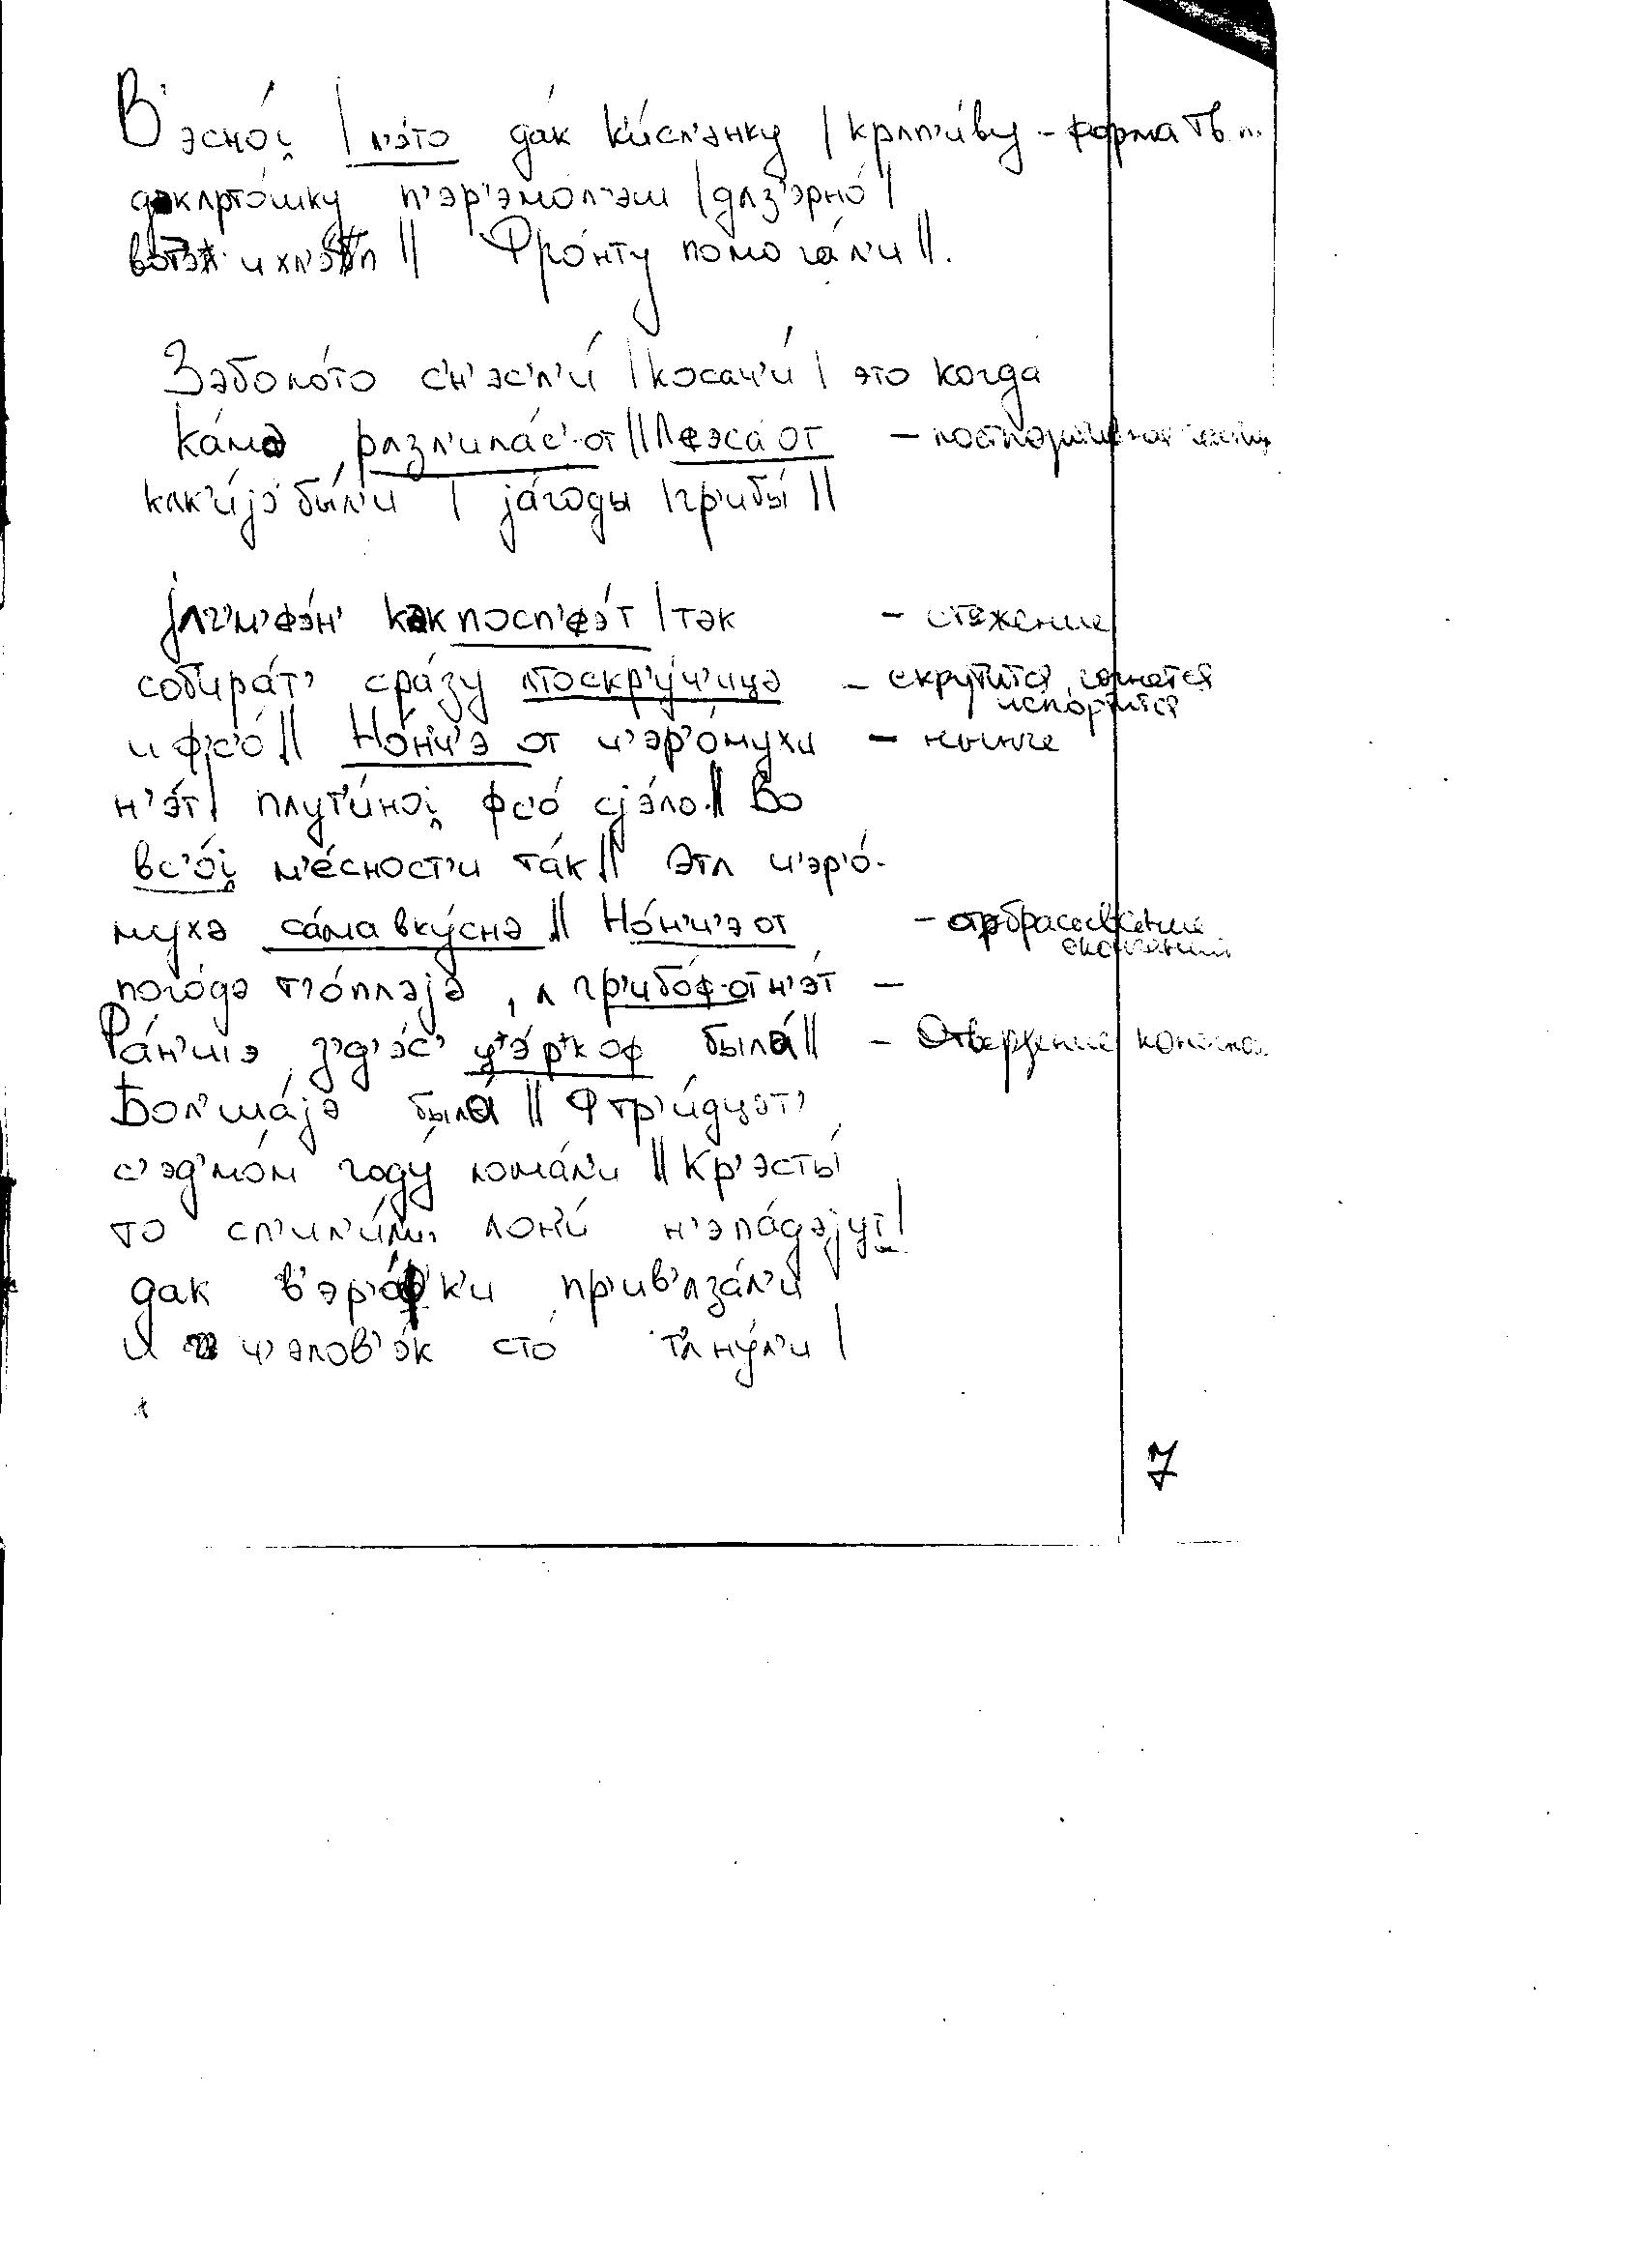 В'эсно́į | л'э́то дак ки́сл'энку | крʌп'и́ву - форма Тв п.
дəкʌрто́шку п'эр'эмо́л'эш | дʌз'эрно́ |
вот и хл'э́п || Фро́нту помога́л'и ||.
Зəболо́то с'н'эс'л'и́ | косач'и́ | это когда́
Ка́мə рʌзл'ила́с'-от || Лэса́ от
кʌк'и́јэ бы́л'и | ја́годы | гр'ибы́ ||
јʌч'м'э́н' кəк посп'э́т | тəк - стяжение
собира́т' сра́зу ʌтоскр'у́ч'ицə - скрутится, согнется
испортится
и ф'с'о́ || Но́н'ч'э от ч'эр'о́мухи - нынче
н'э́т | пʌут'и́ноį фс'о́ сјэ́ло || Во
вс'о́į м'е́сност'и та́к || Этʌ ч'эр'о́-
мухə са́ма вку́снə || Но́н'ч'э от - отбрасывание
окончаний
пого́дə т'о́плəјə, ʌ гр'ибо́ф-от н'э́т -
Ра́н'шэ з'д'э́с' ц'э́р'коф была́ || - Отвердение
Бол'ша́јə была́ || Фтр'и́дцəт'
с'эд'мо́м году́ лома́л'и || Кр'эсты́
то сп'ил'и́л'и, ʌон'и́ н'эпа́дəјут |
дак в'эр'о́фк'и пр'ив'ʌза́л'и
и ч'элов'э́к сто́ т'ʌну́л'и |
7